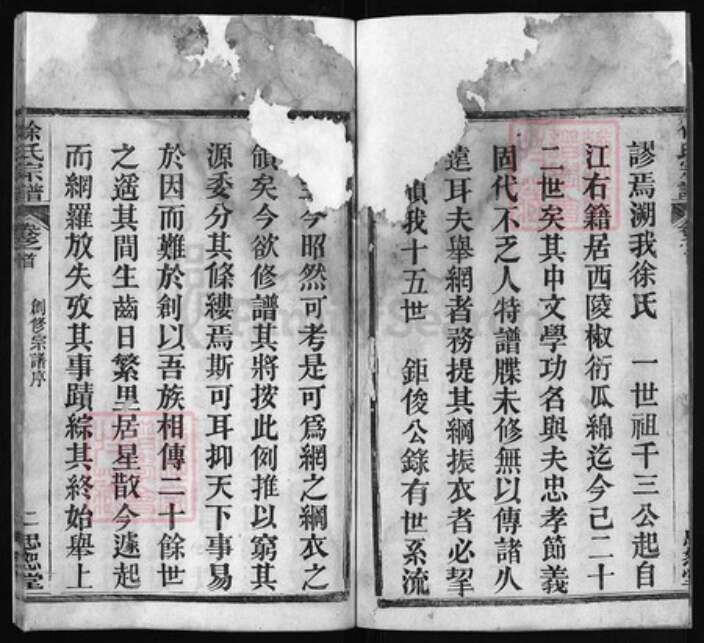 謬焉溯我徐氏 一世祖千三公起自
江右籍居西陵椒衍瓜綿迄今已二十
二世矣其中文學功名與夫忠孝節義
固代不乏人特譜牒未修無以傳諸久
遠耳夫舉網者務提其綱振衣者必挈
領我十五世 鉅俊公錄有世系流
今昭然可考是可為網之綱衣之
領矣今欲修譜其將按此例推以窮其
源委分其條縷焉斯可耳抑天下事易
於因而難於創以吾族相傳二十餘世
之遥其間生齒日繁里居星散今遽起
而網羅放失攷其事蹟綜其終始舉上
徐氏宗譜
卷之首
創修宗譜序
二
忠恕堂